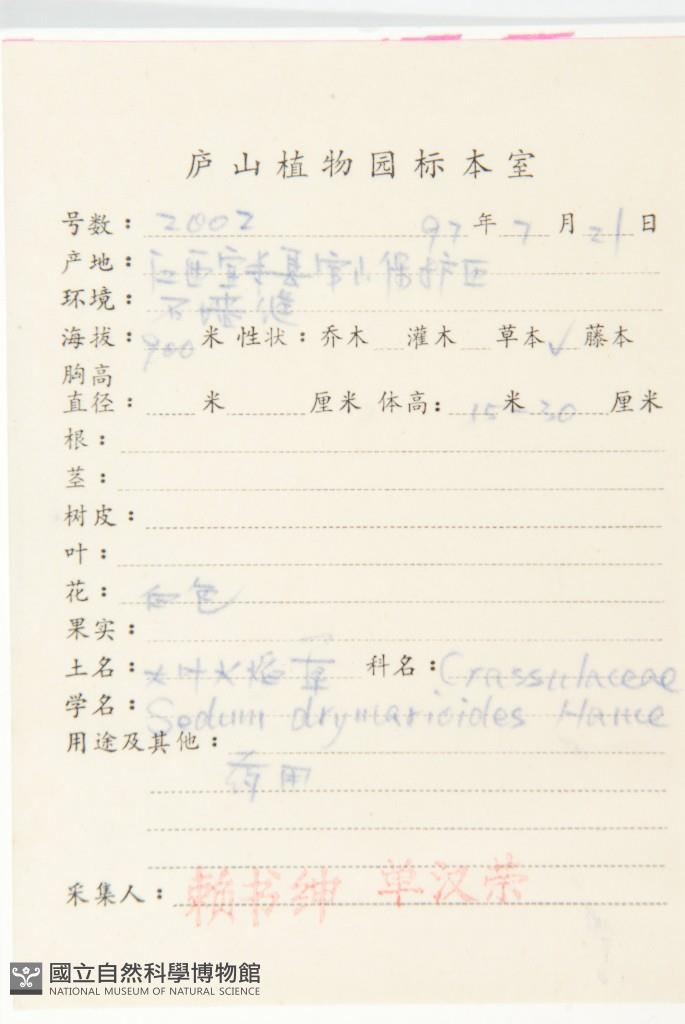 庐山植物园标本室
号数：2002 97年7月21日
产地：江西宜丰县官山保护区
环境：石墙缝
海拔：900米 性状：乔木 灌木 草本✓ 藤本
胸高
直径： 米 厘米 体高：15-30米 厘米
根：
茎：
树皮：
叶：
花：白色
果实：
土名：火焰草 科名：Crassulaceae
学名：Sedum drymarioides Hance
用途及其他：
药用
采集人：赖书绅 单汉荣
國立自然科學博物館
NATIONAL MUSEUM OF NATURAL SCIENCE